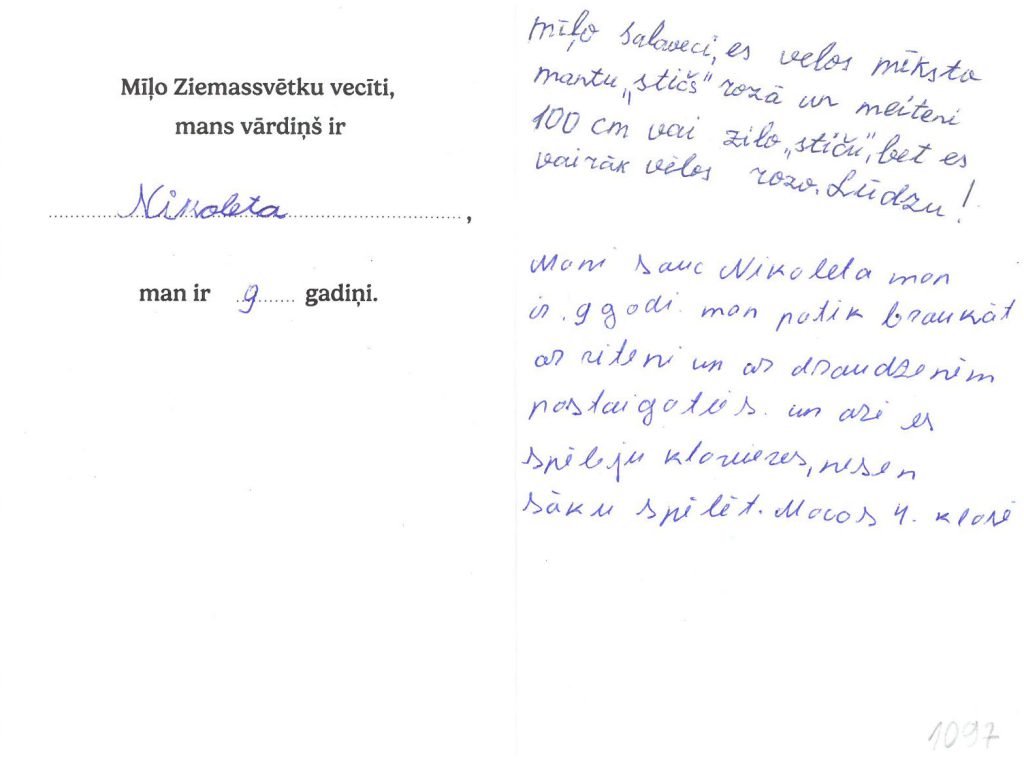 Mīļo Ziemassvētku vecīti,
mans vārdiņš ir
Nikoleta,
man ir 9 gadiņi.
mīļo salaveci, es velos mīksto
mantu „stičš" rozā un meiteni
100 cm vai zilo „stiču", bet es
vairāk vēlos rozo. Lūdzu!
Mani sauc Nikoleta man
ir. 9 godi. man patik braukāt
ar riteni un ar draudzenēm
pastaigaties. un arī es
spēlēju klavieres, nesen
sāku spēlēt. Macos 4. klasē
1097